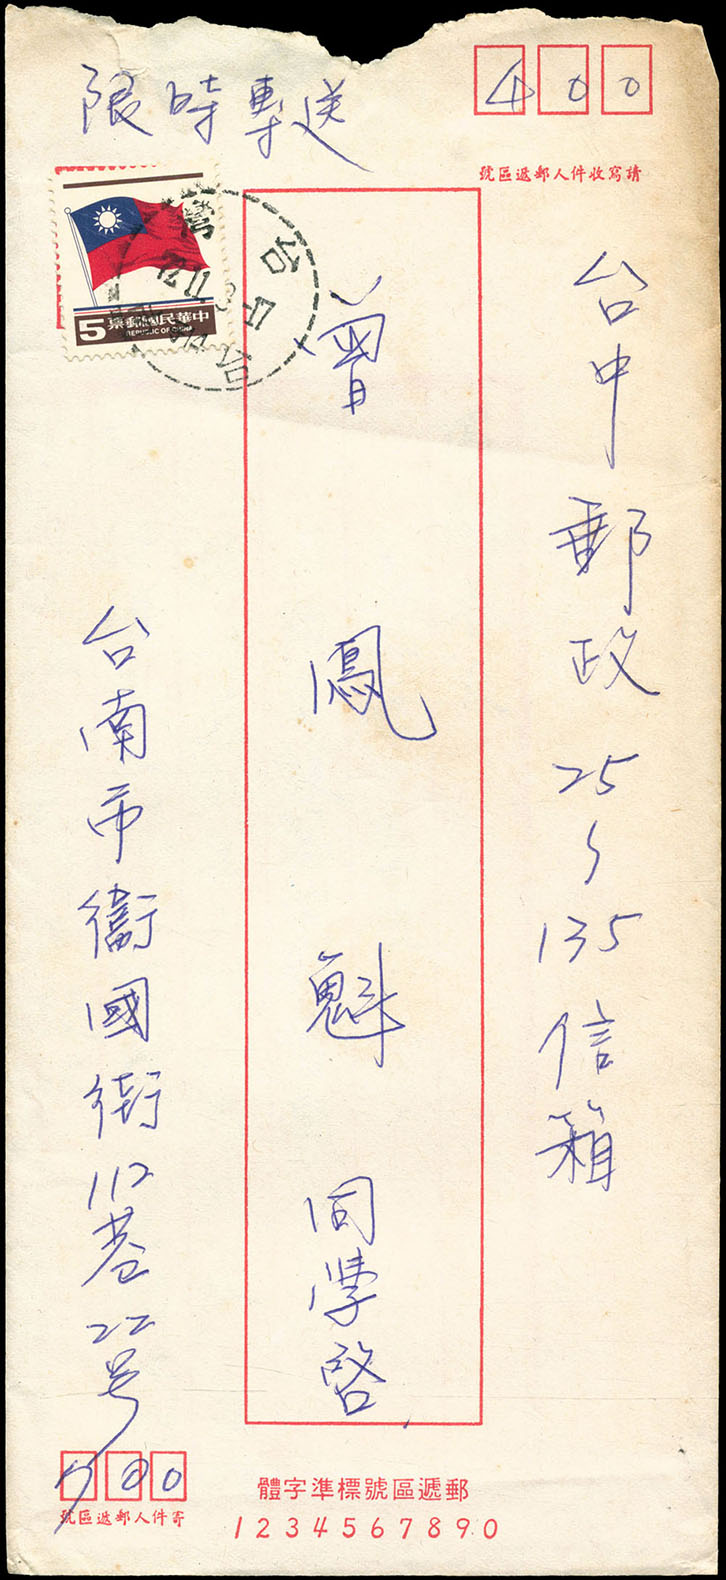 限時專送
400
請寫收件人郵遞區號
台中郵政25~135信箱
曾鳳魁同學啓
台南市衛國街112巷22号
700
寄件人郵遞區號
郵遞區號標準字體
1234567890
5
中華民國郵票
REPUBLIC OF CHINA
台灣
72.11.
-17
台